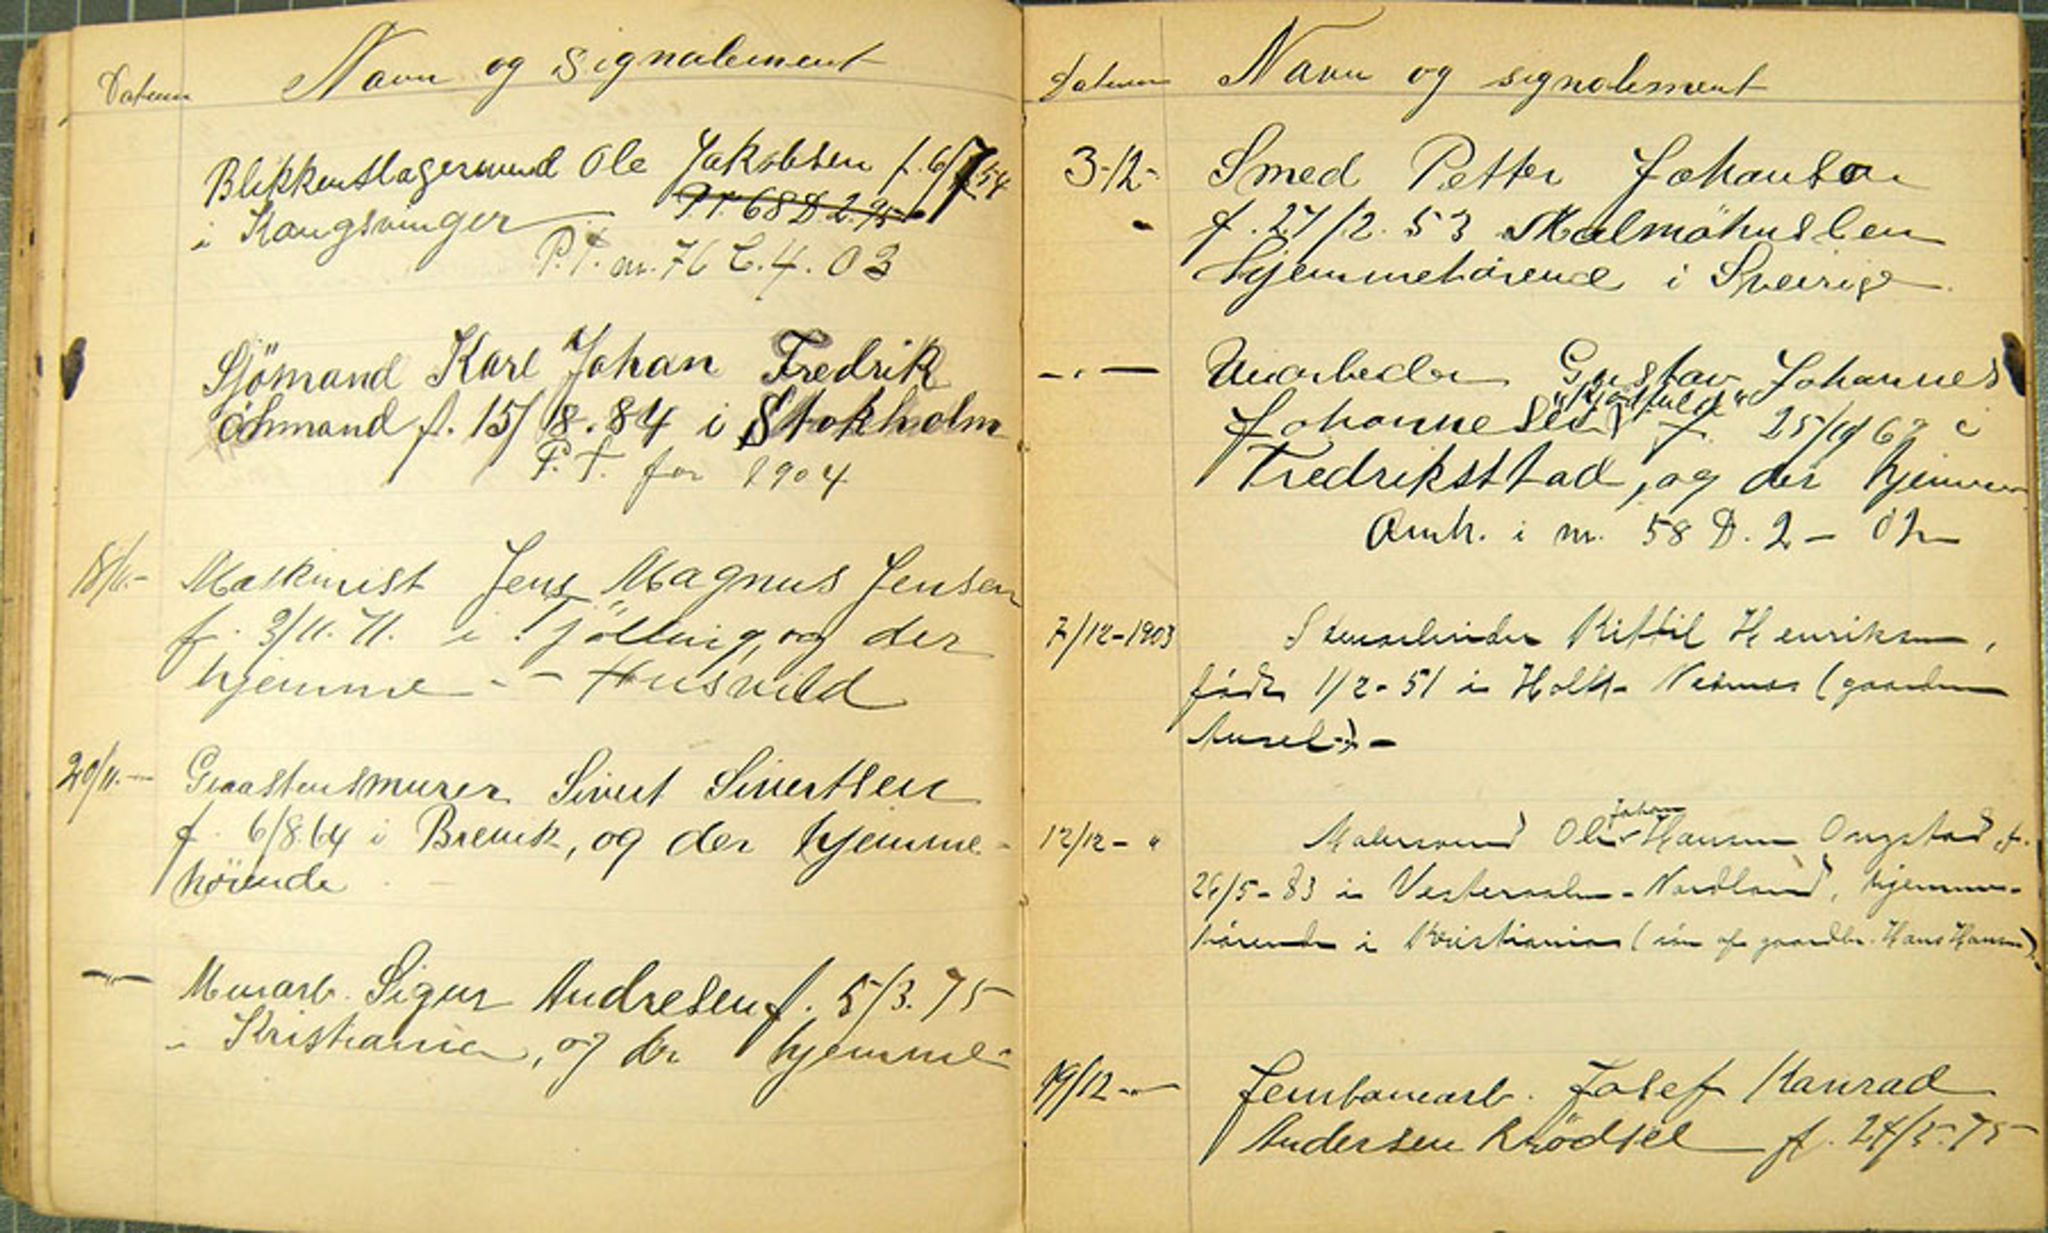 Datum Navn og signalement
Blikkenslagersvend Ole Jakobsen f. 6/7 54
i Kongsvinger P.T. 68 D. 2. 95
P.T. m. 76 C. 4. 03
Sjömand Karl Johan Fredrik
öhmand f. 15/8. 84 i Stokholm
P.T. for 1904
18/11.- Maskinist Jens Magnus Jensen
f. 3/11. 71. i Tjölling, og der
hjemme - - Husvild
20/11.- Graastensmurer Sivert Sivertsen
f. 6/8. 64 i Brevik, og der hjemme-
hörende
—„— Murarb. Sigur Andresen f. 5/3. 75
i Kristiania, og der hjemme-
Datum Navn og signalement
3-12- Smed Petter Johanson
f. 27/2. 53 Malmöhuslen
hjemmehörende i Sverige.
—„— Gustav Johannes
Johannesen f. 25/10 i
Fredriksstad, og der hjemme
Anh. i m. 58 D. 2 -
7/12-1903 Stenarbeider Kittil Henriksen,
födt 1/2-51 i Holt- Nednes (gaarden
12/12- „ Malersvend Ole Johan Hansen Ongstad f.
26/5-83 i Vesteraalen-Nordland, hjemme-
hörende i Kristiania (sön af gaardbr. Hans Hansen).
19/12-„- Jernbanearb. Josef Konrad
Andersen Krödsel f. 24/5. 75